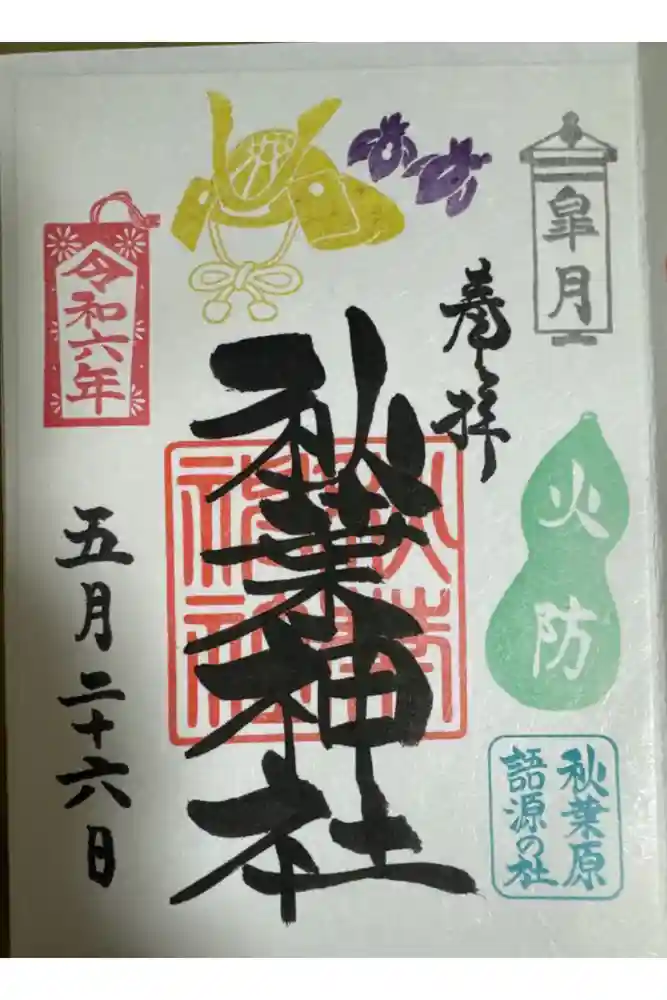 皐月
火防
秋葉原
語源の社
奉拝
秋葉神社
令和六年
五月二十六日